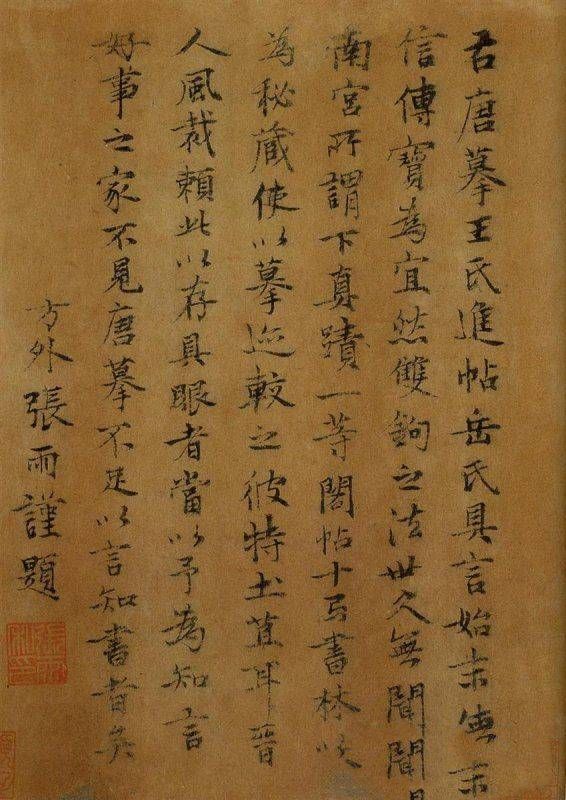 右唐摹王氏進帖岳氏具言始末
信傳寶為宜然雙鉤之法世久無聞聞
南宮所謂下真蹟一等閣帖十弓書林以
為秘藏使以摹迹較之彼特土苴耳晉
人風裁賴此以存具眼者當以予為知言
好事之家不見唐摹不足以言知書者矣
方外張雨謹題